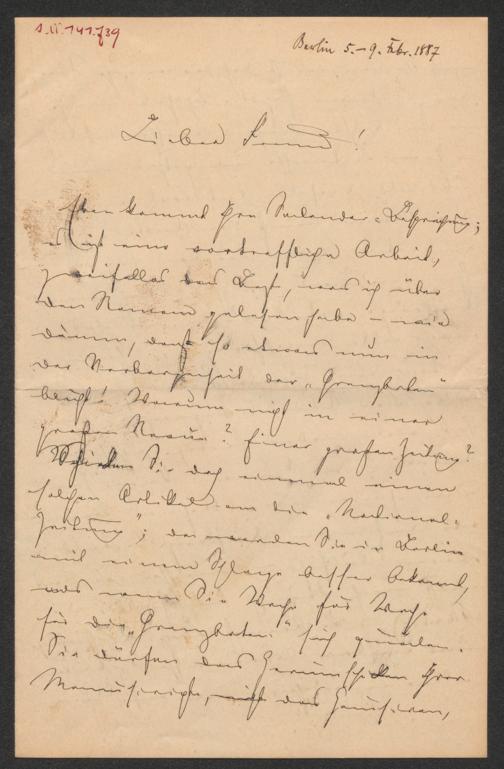 Berlin 5.-9. Febr. 1887
Lieber Freund!
Eben kommt Ihre Salander-Besprechung;
es ist eine vortreffliche Arbeit,
zweifellos das Beste, was ich über
den Roman gelesen habe – wie
dumm, daß so etwas nun in
der Verborgenheit der „Grenzboten"
bleibt! Warum nicht in einer
großen Revue? Einer großen Zeitung?
Schicken Sie doch einmal einen
solchen Artikel an die „National-
Zeitung"; da werden Sie in Berlin
mit einem Schlage besser bekannt,
als wenn Sie Woche für Woche
für die „Grenzboten" sich
Sie dürfen das Herumschicken Ihrer
Manuscripte, das Hausiren,